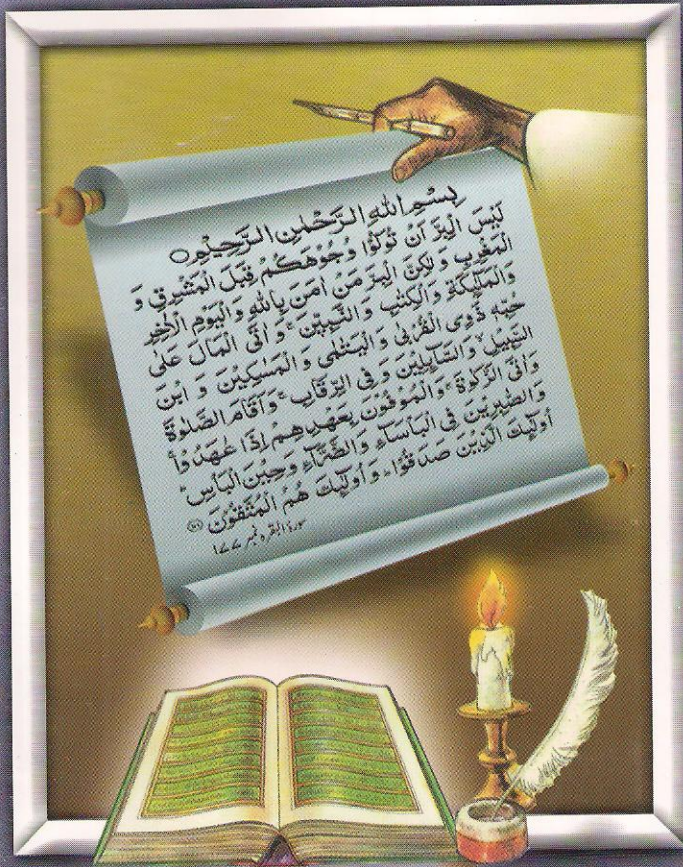 بِسْمِ اللهِ الرَّحْمٰنِ الرَّحِيْمِ ○
لَيْسَ الْبِرَّ اَنْ تُوَلُّوْا وُجُوْهَكُمْ قِبَلَ الْمَشْرِقِ وَ
الْمَغْرِبِ وَ لٰكِنَّ الْبِرَّ مَنْ اٰمَنَ بِاللهِ وَ الْيَوْمِ الْاٰخِرِ
وَالْمَلٰٓئِكَةِ وَالْكِتٰبِ وَالنَّبِيّٖنَ ۚ وَ اٰتَى الْمَالَ عَلٰى
حُبِّهٖ ذَوِى الْقُرْبٰى وَ الْيَتٰمٰى وَ الْمَسٰكِيْنَ وَ ابْنَ
السَّبِيْلِ ۙ وَالسَّآئِلِيْنَ وَ فِى الرِّقَابِ ۚ وَاَقَامَ الصَّلٰوةَ
وَاٰتَى الزَّكٰوةَ ۚ وَالْمُوْفُوْنَ بِعَهْدِهِمْ اِذَا عٰهَدُوْا ۚ
وَالصّٰبِرِيْنَ فِى الْبَاْسَآءِ وَالضَّرَّآءِ وَحِيْنَ الْبَاْسِ ؕ
اُولٰٓئِكَ الَّذِيْنَ صَدَقُوْا ؕ وَ اُولٰٓئِكَ هُمُ الْمُتَّقُوْنَ
سورۃ البقرہ نمبر ۱۷۷